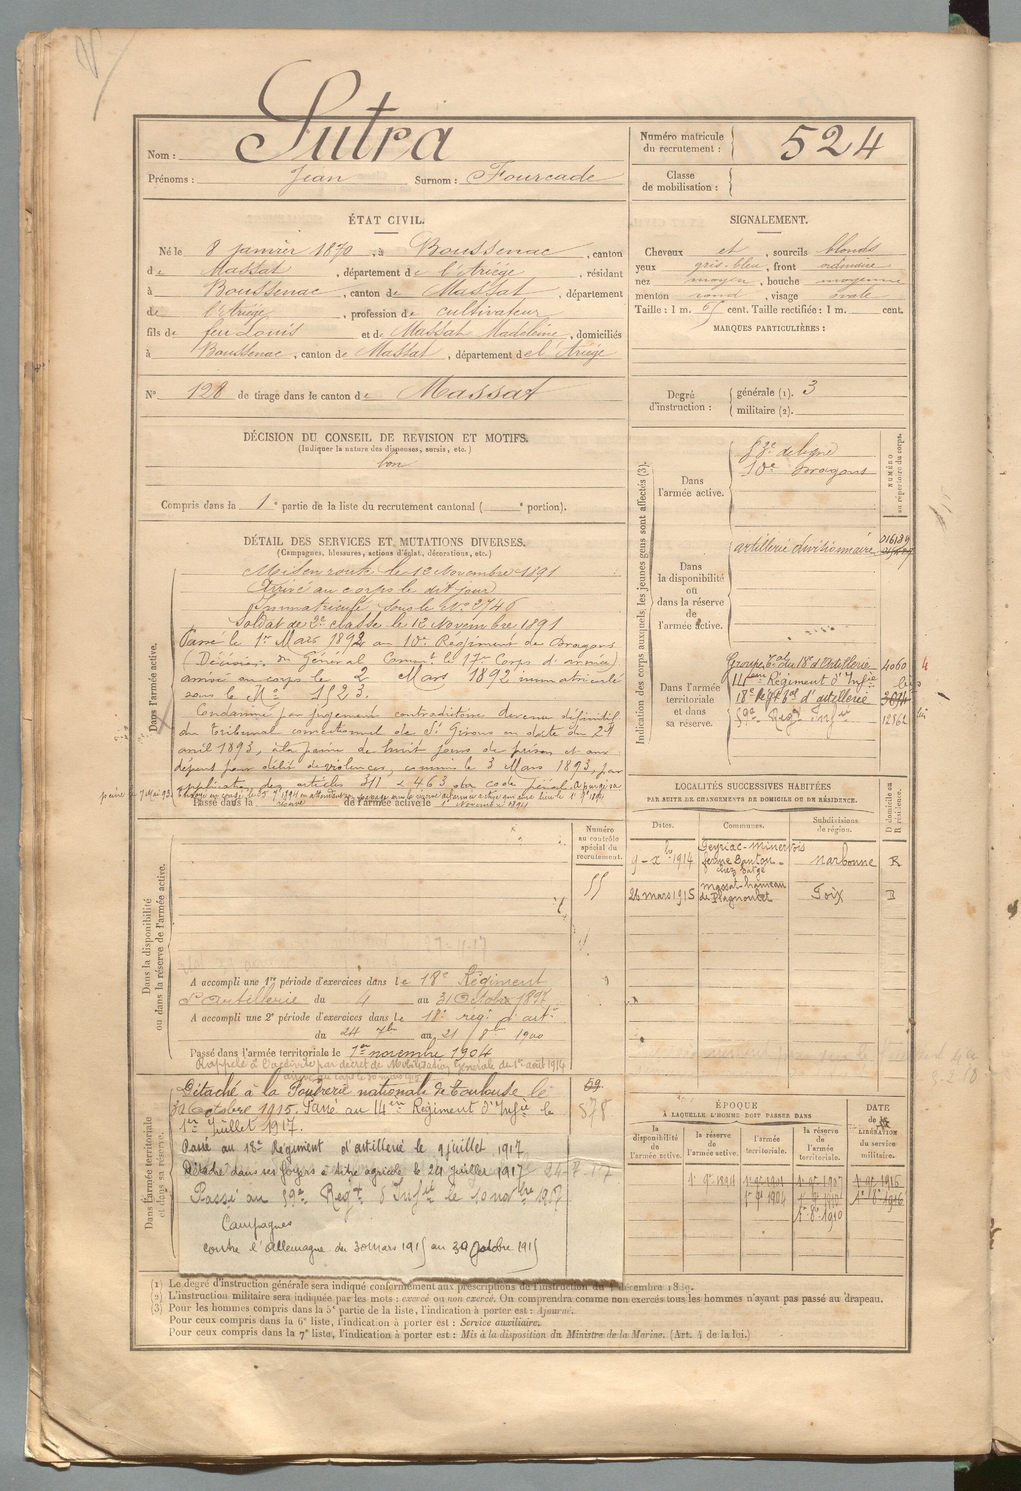 Nom : Sutra
Prénoms : Jean Surnom : Fourcade
Numéro matricule du recrutement : 524
Classe de mobilisation :
ÉTAT CIVIL.
Né le 8 janvier 1870, à Boussenac, canton
de Massat, département de l'Ariége, résidant
à Boussenac, canton de Massat, département
de l'Ariége, profession de cultivateur
fils de feu Louis et de Massat Madeleine, domiciliés
à Boussenac, canton de Massat, département de l'Ariége
No 128 de tirage dans le canton de Massat
SIGNALEMENT.
Cheveux et, sourcils blonds
yeux gris-bleu, front ordinaire
nez moyen, bouche moyenne
menton rond, visage ovale
Taille : 1 m. cent. Taille rectifiée : 1 m. cent.
MARQUES PARTICULIÈRES :
Degré d'instruction : générale (1). 3
militaire (2).
DÉCISION DU CONSEIL DE REVISION ET MOTIFS.
(Indiquer la nature des dispenses, sursis, etc.)
bon
Compris dans la 1e partie de la liste du recrutement cantonal ( e portion).
DÉTAIL DES SERVICES ET MUTATIONS DIVERSES.
(Campagnes, blessures, actions d'éclat, décorations, etc.)
Dans l'armée active.
Mis en route le 12 Novembre 1891
Arrivé au corps le dit jour
Immatriculé sous le No 2746
Soldat de 2e classe le 12 Novembre 1891
Passé le 1er Mars 1892 au 10e Régiment de Dragons
(Décision du Général Comt le 17e Corps d'armée)
arrivé au corps le 2 Mars 1892 immatriculé
sous le No 1523.
Condamné par jugement contradictoire devenu définitif
du tribunal correctionnel de St Girons en date du 29
avril 1893, à la peine de huit jours de prison et aux
dépens pour délit de violences, commis le 3 Mars 1893, par
application des articles 311 & 463 du code Pénal. a purgé sa
peine le 7 Mai 93.
Passé dans la réserve de l'armée active le 1er Novembre 1894
Indication des corps auxquels les jeunes gens sont affectés (3).
NUMÉRO au répertoire du corps.
Dans l'armée active.
de ligne
10e Dragons
Dans la disponibilité ou dans la réserve de l'armée active.
artillerie divisionnaire
Dans l'armée territoriale et dans sa réserve.
Groupe tal du 18e d'Artillerie 4060
Régiment d'Infie
18e Régt d'artillerie
Regt Infie 12562
LOCALITÉS SUCCESSIVES HABITÉES
PAR SUITE DE CHANGEMENTS DE DOMICILE OU DE RÉSIDENCE.
Dates. Communes. Subdivisions de région. D domicile ou R résidence.
9 - Xbre 1914 Peyriac-Minervois ferme Narbonne R
26 mars 1915 Massat-hameau de Foix D
Dans la disponibilité ou dans la réserve de l'armée active.
Numéro au contrôle spécial du recrutement.
55
A accompli une 1re période d'exercices dans le 18e Régiment
d'Artillerie du 4 au 31 Octobre
A accompli une 2e période d'exercices dans le 18e reg. d'art.
du 24 7bre au 21 8bre 1900
Passé dans l'armée territoriale le 1er novembre 1904
Rappelé à l'activité par décret de Mobilisation Générale du 1er août 1914
Dans l'armée territoriale et dans sa réserve.
Détaché à la Poudrerie nationale de Toulouse le
30 octobre 1915. Passé au 14ème Régiment d'Infie le
1er Juillet 1917.
Passé au 18e Régiment d'artillerie le 9 juillet 1917
Détaché dans ses foyers à titre agricole le 24 Juillet 1917
Passé au 59e Regt d'Infie le 10 novbre 1917
Campagnes
contre l'Allemagne du 30 mars 1915 au 30 Octobre 1915
59
578
ÉPOQUE
A LAQUELLE L'HOMME DOIT PASSER DANS
la disponibilité de l'armée active. la réserve de l'armée active. l'armée territoriale. la réserve de l'armée territoriale.
DATE de la LIBÉRATION du service militaire.
(1) Le degré d'instruction générale sera indiqué conformément aux prescriptions de l'instruction du 4 décembre 1889.
(2) L'instruction militaire sera indiquée par les mots : exercé ou non exercé. On comprendra comme non exercés tous les hommes n'ayant pas passé au drapeau.
(3) Pour les hommes compris dans la 5e partie de la liste, l'indication à porter est : Ajourné.
Pour ceux compris dans la 6e liste, l'indication à porter est : Service auxiliaire.
Pour ceux compris dans la 7e liste, l'indication à porter est : Mis à la disposition du Ministre de la Marine. (Art. 4 de la loi.)